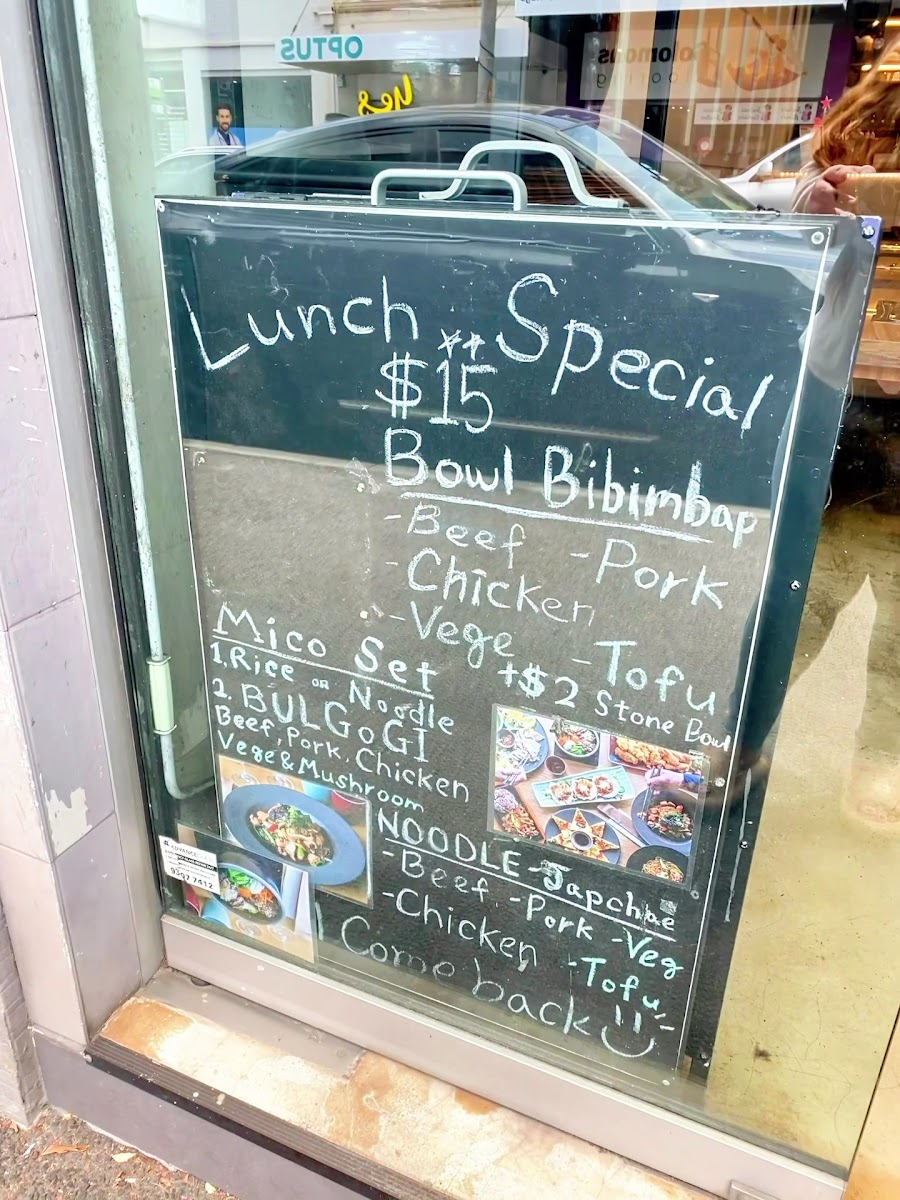 OPTUS
yes
Solomons
Flooring
Lunch Special
$15
Bowl Bibimbap
-Beef -Pork
-Chicken
-Vege -Tofu
+$2 Stone Bowl
Mico Set
1. Rice OR Noodle
2. BULGOGI
Beef, Pork, Chicken
Vege & Mushroom
NOODLE-Japchae
-Beef -Pork -Veg
-Chicken -Tofu
Come back !!
ADVANCE
9397 7412